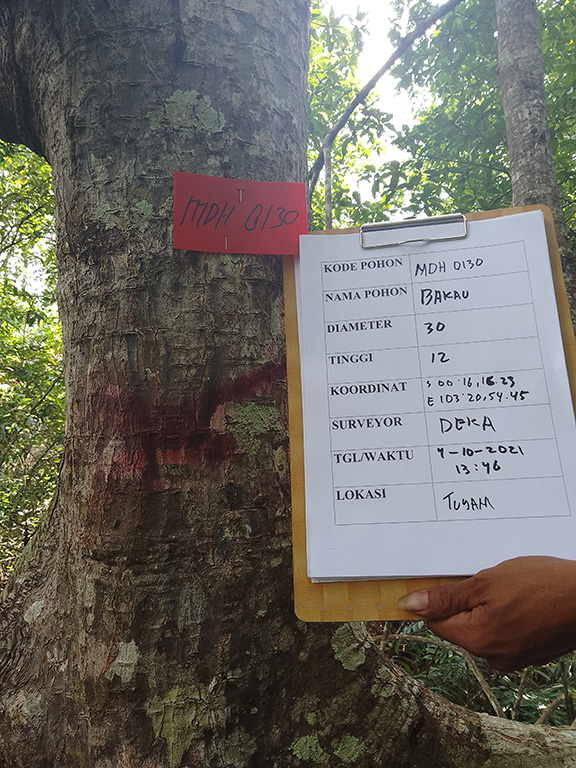 MDH 0130
KODE POHON MDH 0130
NAMA POHON BAKAU
DIAMETER 30
TINGGI 12
KOORDINAT S 00.16,16.23
E 103.20,54.45
SURVEYOR DEKA
TGL/WAKTU 9-10-2021
13:46
LOKASI TUNAM